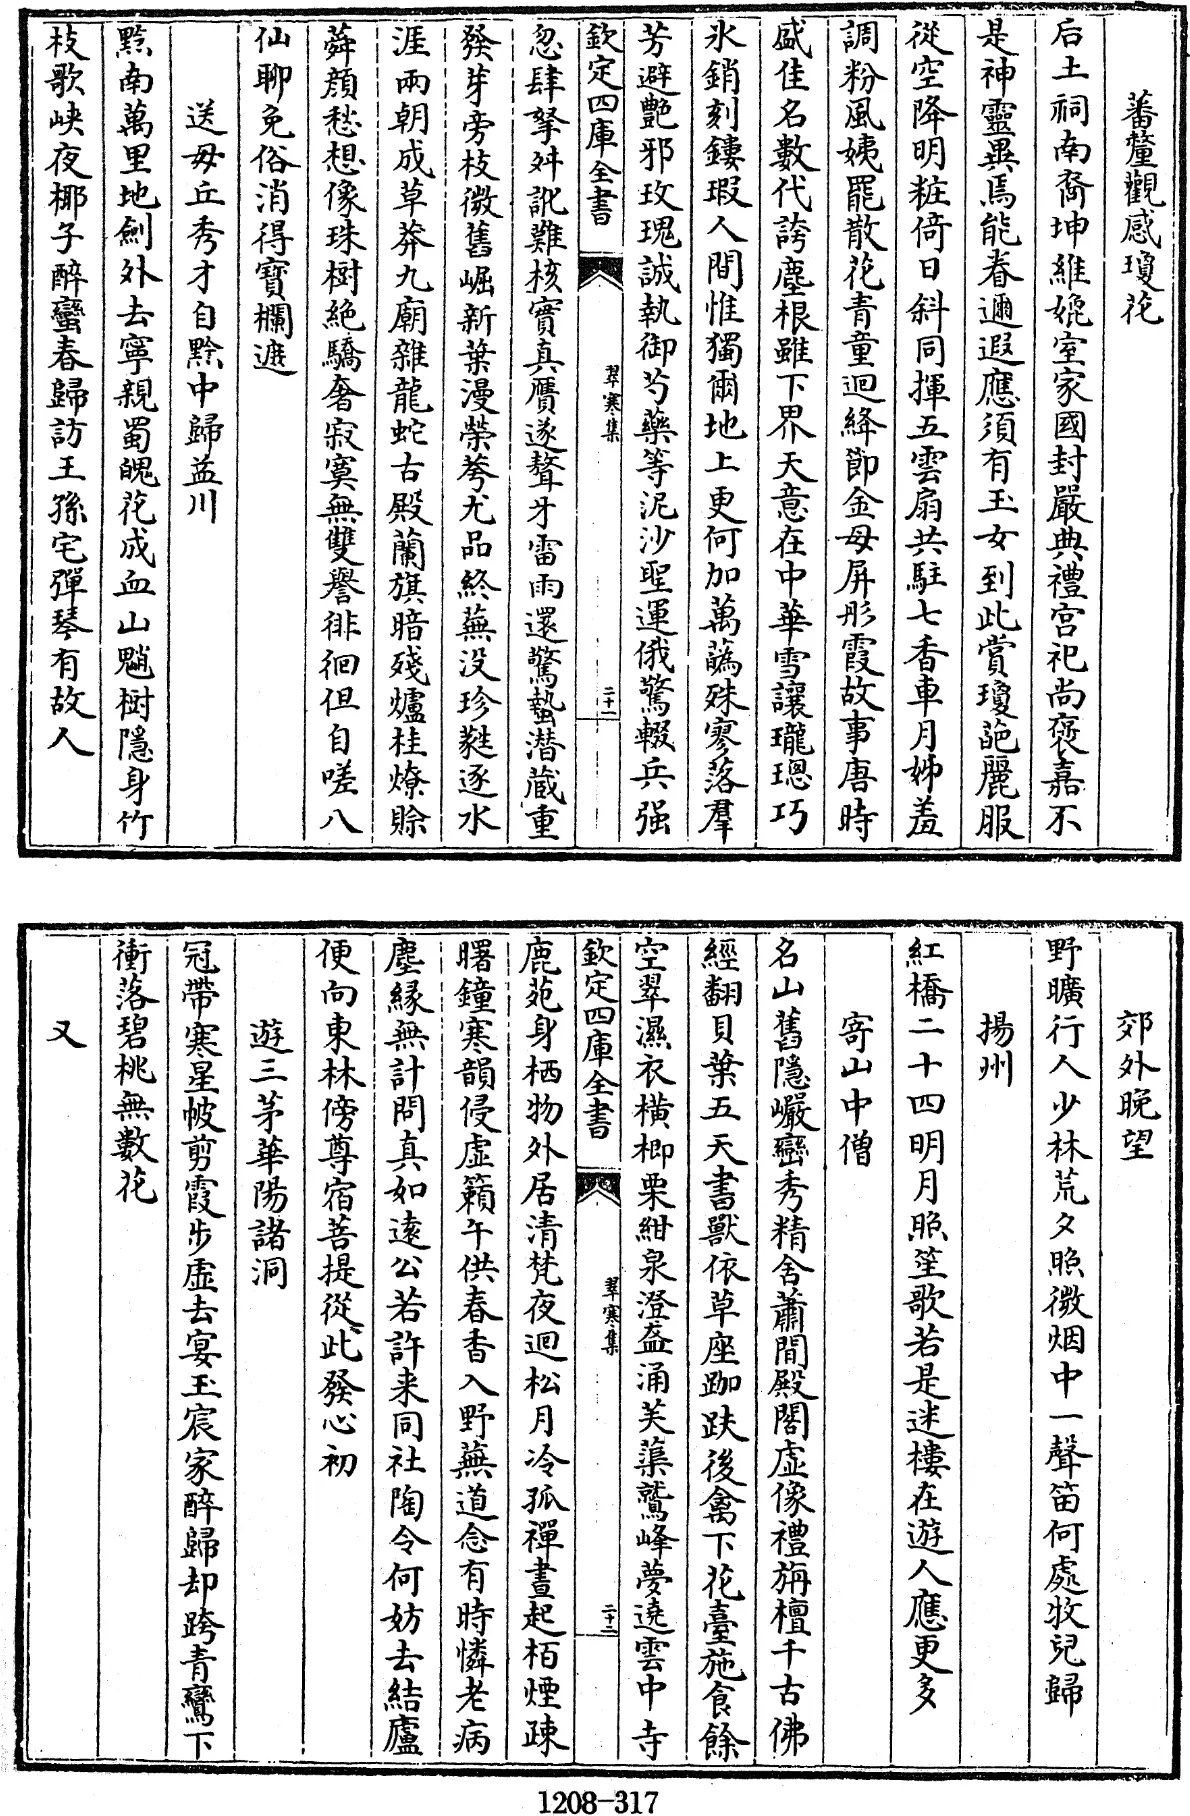 蕃釐觀感瓊花
后土祠南裔坤維㛂室家國封嚴典禮宫祀尚褒嘉不
是神靈異焉能眷邇遐應須有玉女到此賞瓊葩麗服
從空降明粧倚日斜同揮五雲扇共駐七香車月姊羞
調粉風姨罷散花青童迴絳節金母屏彤霞故事唐時
盛佳名數代誇塵根雖下界天意在中華雪讓瓏璁巧
氷銷刻鏤瑕人間惟獨爾地上更何加萬蘤殊寥落羣
芳避艷邪玫瑰誠執御芍藥等泥沙聖運俄驚輟兵强
欽定四庫全書
翠寒集
二十一
忽肆拏舛訛難核實真贋遂聱牙雷雨還驚蟄潜藏重
發芽旁枝微舊崛新葉漫榮荂尤品終蕪没珍蕤逐水
涯兩朝成草莽九廟雜龍蛇古殿蘭旗暗殘爐桂燎賖
蕣顔愁想像珠樹絶驕奢寂寞無雙譽徘徊但自嗟八
仙聊免俗消得寳欄遮
送毋丘秀才自黔中歸益川
黔南萬里地劍外去寧親蜀魄花成血山魈樹隱身竹
枝歌峽夜椰子醉蠻春歸訪王孫宅彈琴有故人
郊外晚望
野曠行人少林荒夕照微烟中一聲笛何處牧兒歸
揚州
紅橋二十四明月照笙歌若是迷樓在遊人應更多
寄山中僧
名山舊隱巗巒秀精舍蕭閒殿閣虚像禮旃檀千古佛
經翻貝葉五天書獸依草座跏趺後禽下花臺施食餘
空翠濕衣横楖栗紺泉澄盋涌芙蕖鷲峰夢遶雲中寺
欽定四庫全書
翠寒集
二十二
鹿苑身栖物外居清梵夜迴松月冷孤禪晝起栢煙疎
曙鐘寒韻侵虚籟午供春香入野蕪道念有時憐老病
塵緣無計問真如遠公若許来同社陶令何妨去結廬
便向東林傍尊宿菩提從此發心初
遊三茅華陽諸洞
冠帶寒星帔剪霞步虚去宴玉宸家醉歸却跨青鸞下
衝落碧桃無數花
又
1208-317